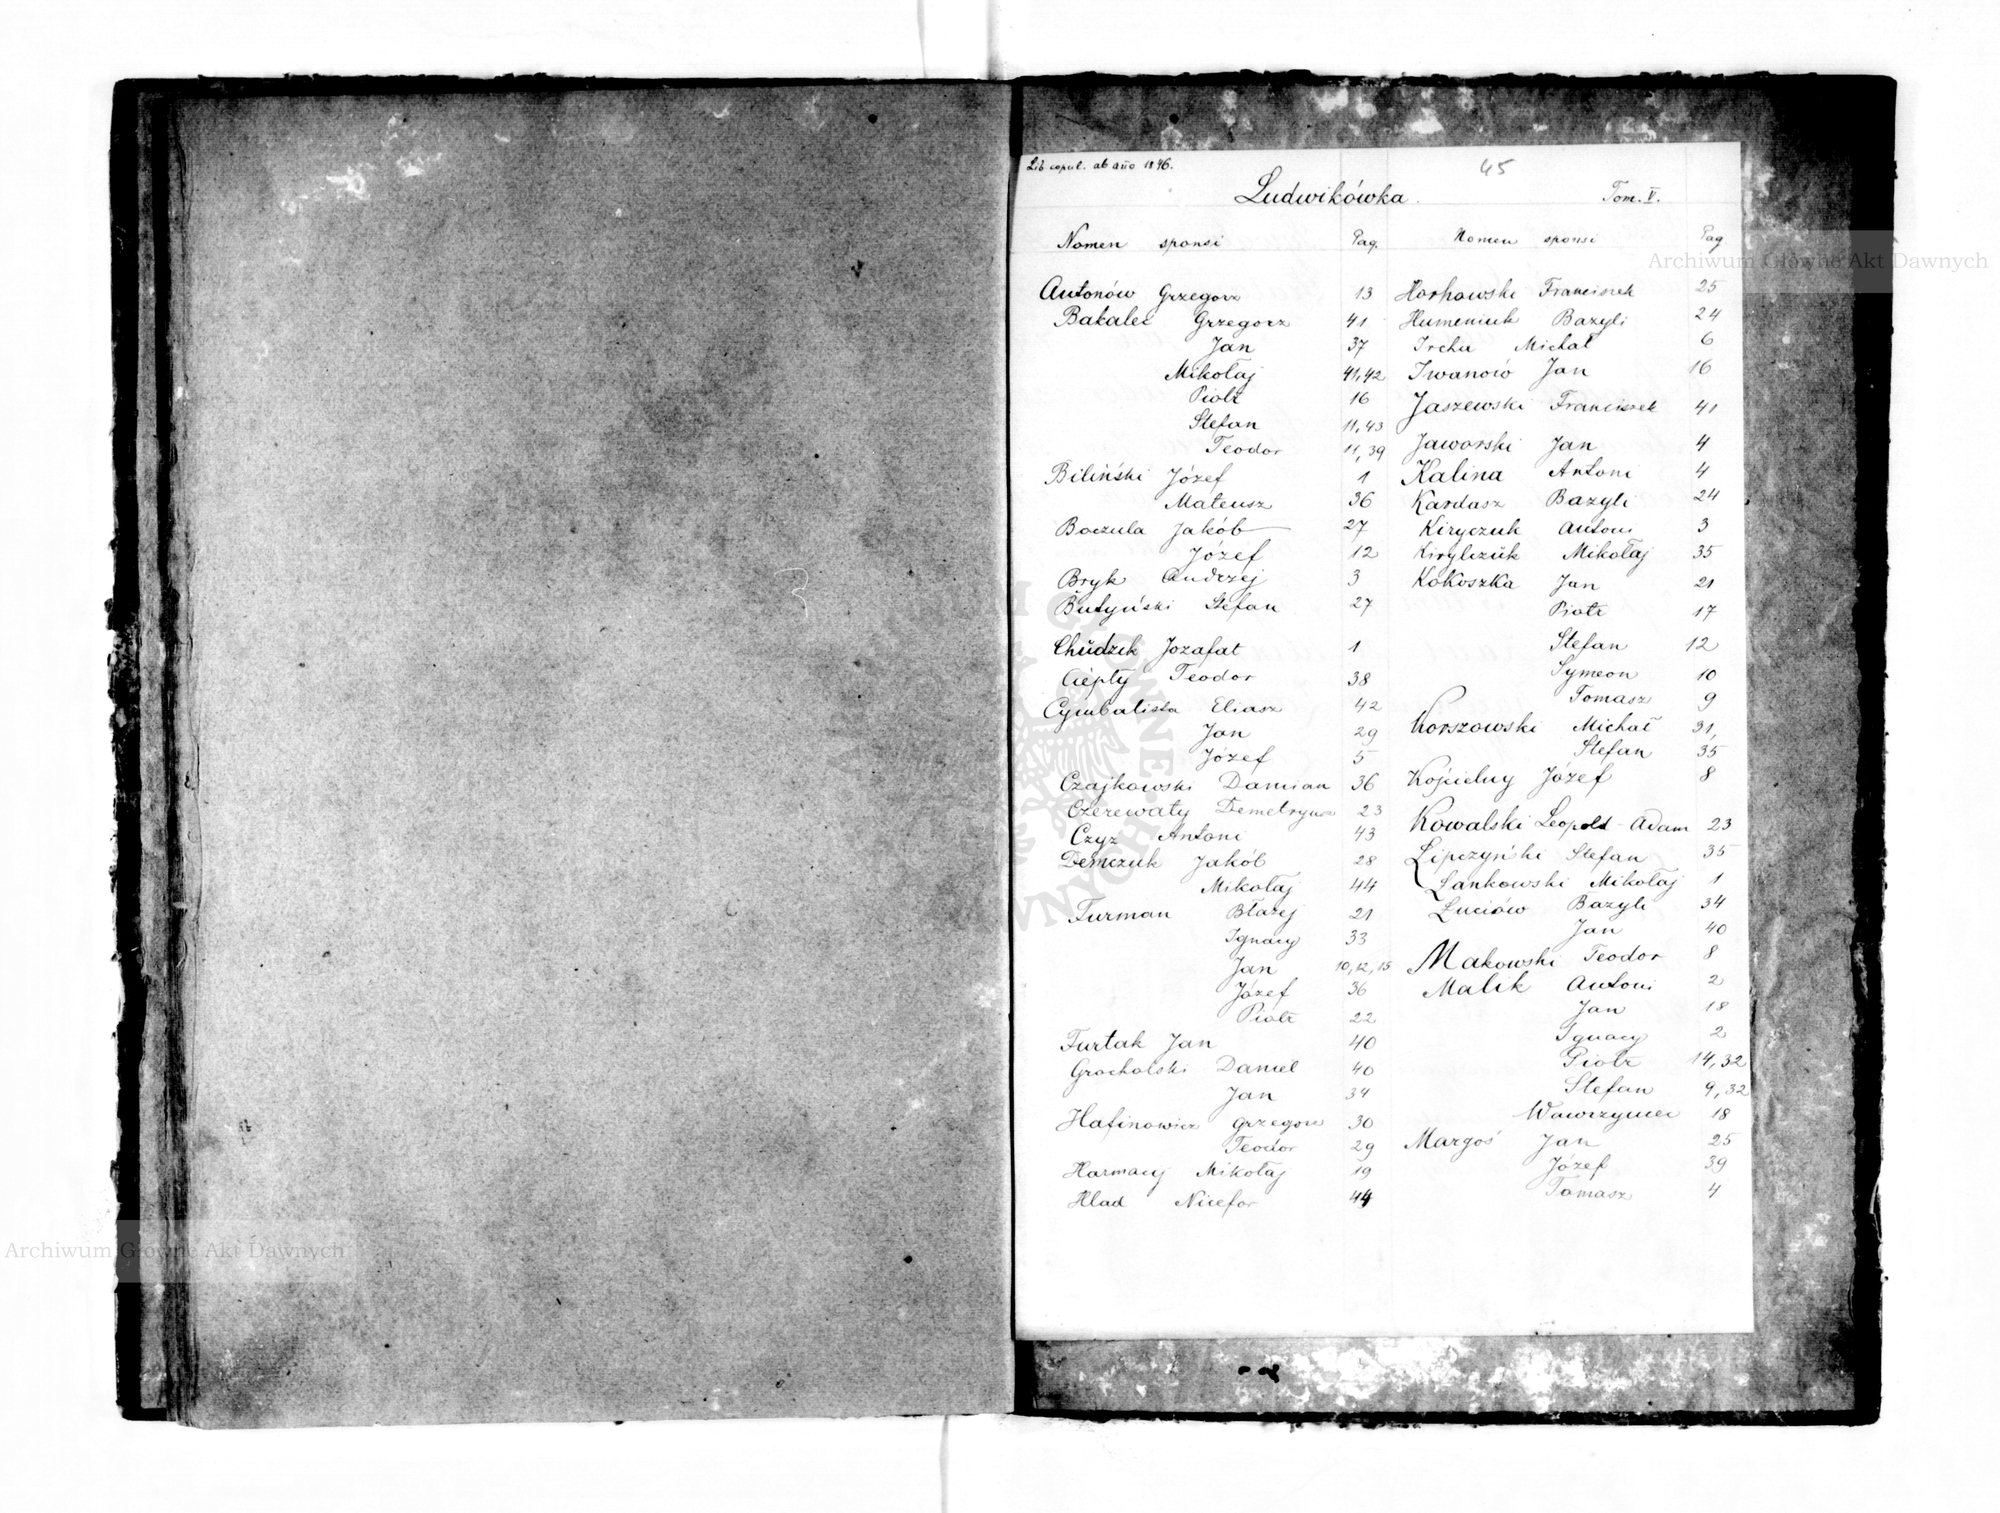 Lib. copul. ab año 1846.
45
Ludwikówka. Tom. V.
Nomen sponsi Pag.
Antonów Grzegorz 13
Bakalec Grzegorz 41
Jan 37
Mikołaj 41,42
Piotr 16
Stefan 11,43
Teodor 11,39
Biliński Józef 1
Mateusz 36
Boczula Jakób 27
Józef 12
Bryk Andrzej 3
Butyński Stefan 27
Chudzik Jozafat 1
Ciepły Teodor 38
Cymbalista Eliasz 42
Jan 29
Józef 5
Czajkowski Damian 36
Czerewaty Demetryusz 23
Czyz Antoni 43
Demczuk Jakób 28
Mikołaj 44
Furman Błażej 21
Ignacy 33
Jan 10,12,15
Józef 36
Piotr 22
Furtak Jan 40
Grocholski Daniel 40
Jan 34
Hafinowicz Grzegorz 30
Teodor 29
Harmacy Mikołaj 19
Hlad Nicefor 44
Nomen sponsi Pag
Horhowski Franciszek 25
Humeniuk Bazyli 24
Ircha Michał 6
Iwanów Jan 16
Jaszewski Franciszek 41
Jaworski Jan 4
Kalina Antoni 4
Kardasz Bazyli 24
Kiryczuk Antoni 3
Kirylczuk Mikołaj 35
Kokoszka Jan 21
Piotr 17
Stefan 12
Symeon 10
Tomasz 9
Korszowski Michał 31,
Stefan 35
Józef 8
Kowalski Leopold - Adam 23
Lipczyński Stefan 35
Łankowski Mikołaj 1
Łuciów Bazyli 34
Jan 40
Makowski Teodor 8
Malik Antoni 2
Jan 18
Ignacy 2
Piotr 14,32
Stefan 9,32
Wawrzyniec 18
Margoś Jan 25
Józef 39
Tomasz 4
Archiwum Główne Akt Dawnych
Archiwum Główne Akt Dawnych